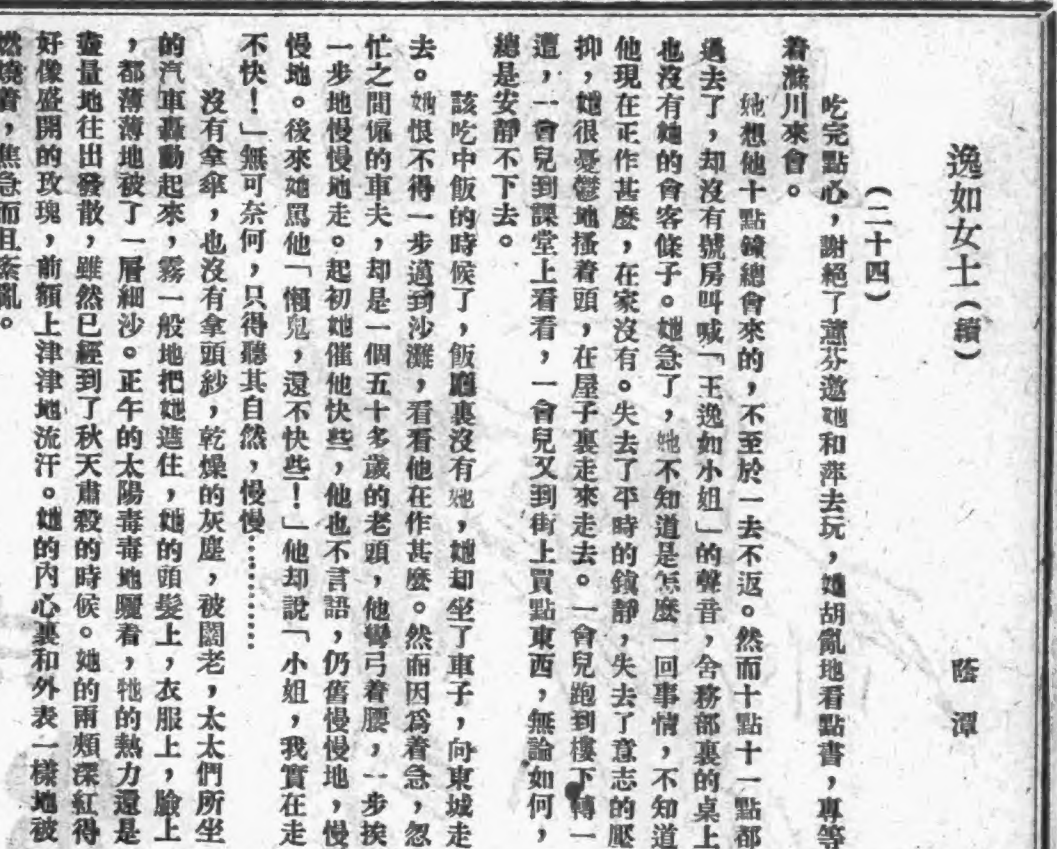 逸如女士(續)　　蔭潭
(二十四)
吃完點心,謝絕了蕙芬邀她和萍去玩,她胡亂地看點書,專等
着滌川來會。
她想他十點鐘總會來的,不至於一去不返。然而十點十一點都
過去了,却沒有號房叫喊「王逸如小姐」的聲音,舍務部裏的桌上
也沒有她的會客條子。她急了,她不知道是怎麼一回事情,不知道
他現在正作甚麼,在家沒有。失去了平時的鎮靜,失去了意志的壓
抑,她很憂鬱地搔着頭,在屋子裏走來走去。一會兒跑到樓下轉一
遭,一會兒到課堂上看看,一會兒又到街上買點東西,無論如何,
總是安靜不下去。
該吃中飯的時候了,飯廳裏沒有她,她却坐了車子,向東城走
去。她恨不得一步邁到沙灘,看看他在作甚麼。然而因爲着急,忽
忙之間僱的車夫,却是一個五十多歲的老頭,他彎弓着腰,一步挨
一步地慢慢地走。起初她催他快些,他也不言語,仍舊慢慢地,慢
慢地。後來她罵他「懶鬼,還不快些!」他却說「小姐,我實在走
不快!」無可奈何,只得聽其自然,慢慢…………
沒有拿傘,也沒有拿頭紗,乾燥的灰塵,被闊老,太太們所坐
的汽車轟動起來,霧一般地把她遮住,她的頭髮上,衣服上,臉上
,都薄薄地被了一層細沙。正午的太陽毒毒地曬着,牠的熱力還是
儘量地往出發散,雖然已經到了秋天肅殺的時候。她的兩頰深紅得
好像盛開的玫瑰,前額上津津地流汗。她的內心裏和外表一樣地被
燃燒着,焦急而且紊亂。